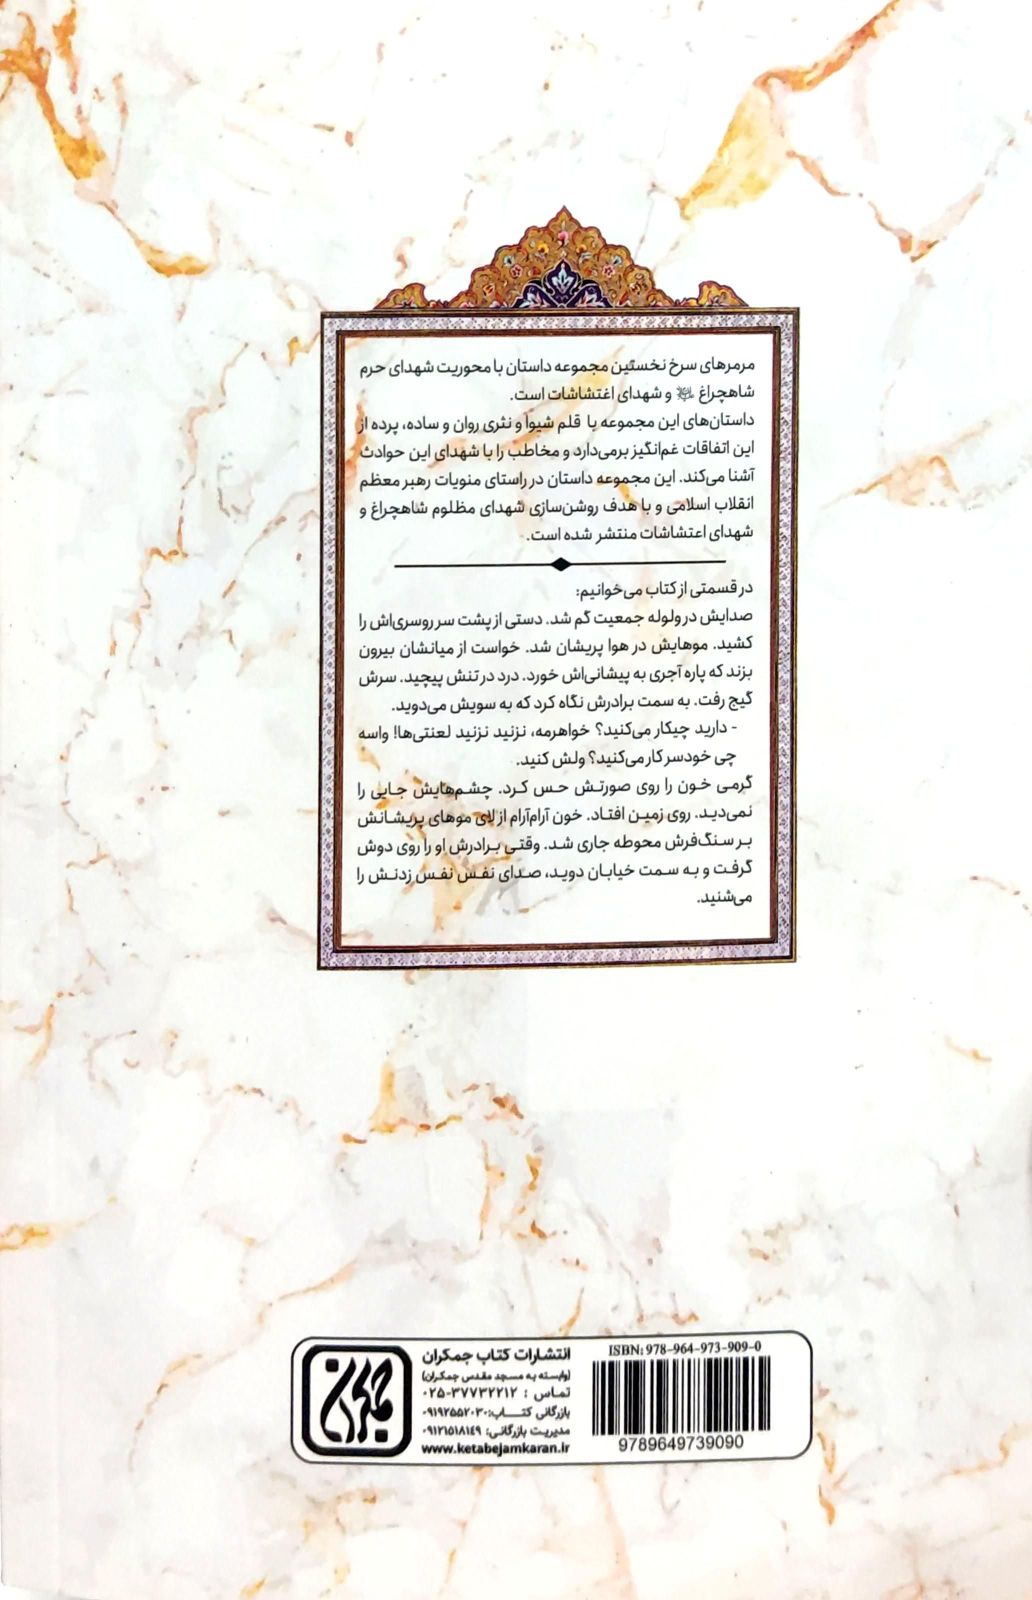 مرمرهای سرخ نخستین مجموعه داستان با محوریت شهدای حرم
شاهچراغ و شهدای اغتشاشات است.
داستان‌های این مجموعه با قلم شیوا و نثری روان و ساده، پرده از
این اتفاقات غم‌انگیز برمی‌دارد و مخاطب را با شهدای این حوادث
آشنا می‌کند. این مجموعه داستان در راستای منویات رهبر معظم
انقلاب اسلامی و با هدف روشن‌سازی شهدای مظلوم شاهچراغ و
شهدای اعتشاشات منتشر شده است.
در قسمتی از کتاب می‌خوانیم:
صدایش در ولوله جمعیت گم شد. دستی از پشت سر روسری‌اش را
کشید. موهایش در هوا پریشان شد. خواست از میانشان بیرون
بزند که پاره آجری به پیشانی‌اش خورد. درد در تنش پیچید. سرش
گیج رفت. به سمت برادرش نگاه کرد که به سویش می‌دوید.
- دارید چیکار می‌کنید؟ خواهرمه، نزنید نزنید لعنتی‌ها! واسه
چی خودسر کار می‌کنید؟ ولش کنید.
گرمی خون را روی صورتش حس کرد. چشم‌هایش جایی را
نمی‌دید. روی زمین افتاد. خون آرام‌آرام از لای موهای پریشانش
بر سنگ‌فرش محوطه جاری شد. وقتی برادرش او را روی دوش
گرفت و به سمت خیابان دوید، صدای نفس نفس زدنش را
می‌شنید.
جمکران
انتشارات کتاب جمکران
(وابسته به مسجد مقدس جمکران)
تماس : ۰۲۵-۳۷۷۳۲۲۱۲
بازرگانی کتاب: ۰۹۱۹۲۵۵۲۰۳۰
مدیریت بازرگانی: ۰۹۱۲۱۵۱۸۱۴۹
www.ketabejamkaran.ir
ISBN: 978-964-973-909-0
9789649739090